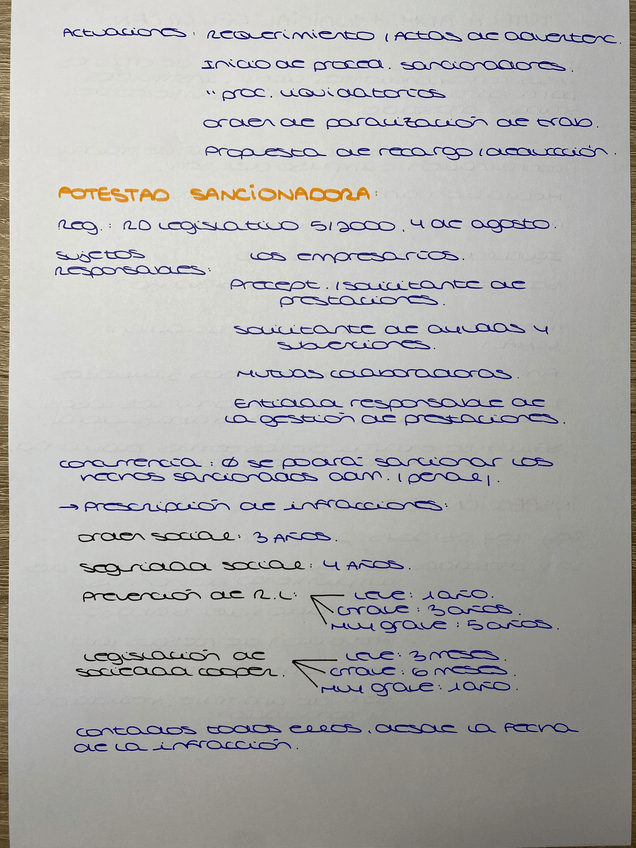 Actuaciones: Requerimiento / Actas de advertenc.
Inicio de proced. sancionadores.
" proc. liquidatorios
orden de paralización de trab.
Propuesta de recargo / deducción.
POTESTAD SANCIONADORA:
Reg.: RD Legislativo 5/2000, 4 de agosto.
sujetos
responsables:
Los empresarios.
Precept. / solicitante de
prestaciones.
solicitante de ayudas y
subvenciones.
Mutuas colaboradoras.
Entidad responsable de
la gestión de prestaciones.
concurrencia: Ø se podrá sancionar los
hechos sancionados adm. / penal.
→ Prescripción de infracciones:
orden social: 3 AÑOS.
seguridad social: 4 AÑOS.
Prevención de R.L:
Leve: 1 año.
Grave: 3 años.
Muy grave: 5 años.
Legislación de
sociedad cooper.
Leve: 3 meses.
Grave: 6 meses.
Muy grave: 1 año.
contados todos ellos, desde la fecha
de la infracción.